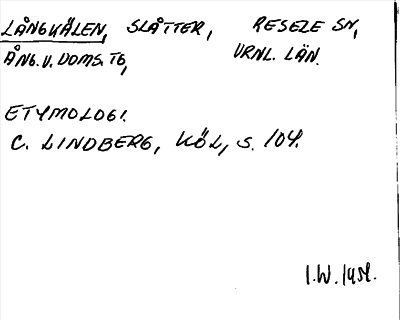 LÅNGKÄLEN, SLÅTTER, RESELE SN,
ÅNG. V. DOMS. TG, VRNL. LÄN.
ETYMOLOGI.
C. LINDBERG, KÖL, S. 104.
I.W. 1951.